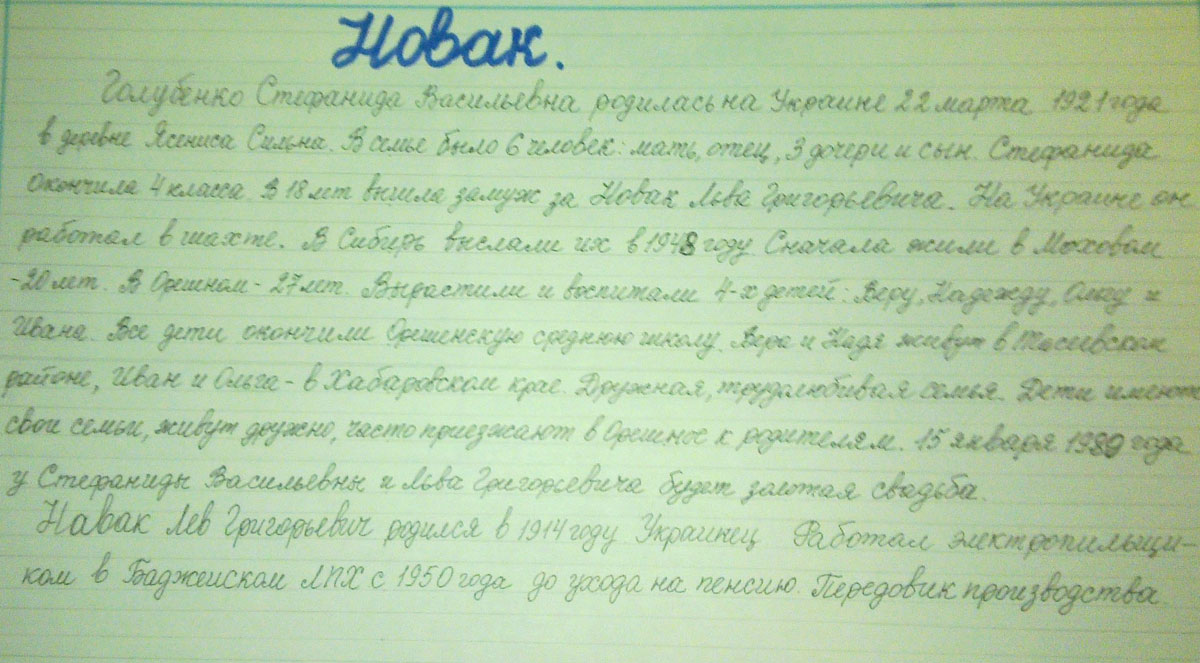 Новак.
Голубенко Стефанида Васильевна родилась на Украине 22 марта 1921 года
в деревне Ясениса Сильна. В семье было 6 человек: мать, отец, 3 дочери и сын. Стефанида
Окончила 4 класса. В 18 лет вышла замуж за Новак Льва Григорьевича. На Украине он
работал в шахте. В Сибирь выслали их в 1948 году. Сначала жили в Моховом
-20 лет. В Орешном - 27 лет. Вырастили и воспитали 4-х детей: Веру, Надежду, Ольгу и
Ивана. Все дети окончили Орешенскую среднюю школу. Вера и Надя живут в Тасеевском
районе, Иван и Ольга - в Хабаровском крае. Дружная, трудолюбивая семья. Дети имеют
свои семьи, живут дружно, часто приезжают в Орешное к родителям. 15 января 1989 года
у Стефаниды Васильевны и Льва Григорьевича будет золотая свадьба.
Навак Лев Григорьевич родился в 1914 году Украинец Работал электропильщи-
ком в Баджейском ЛПХ с 1950 года до ухода на пенсию. Передовик производства.